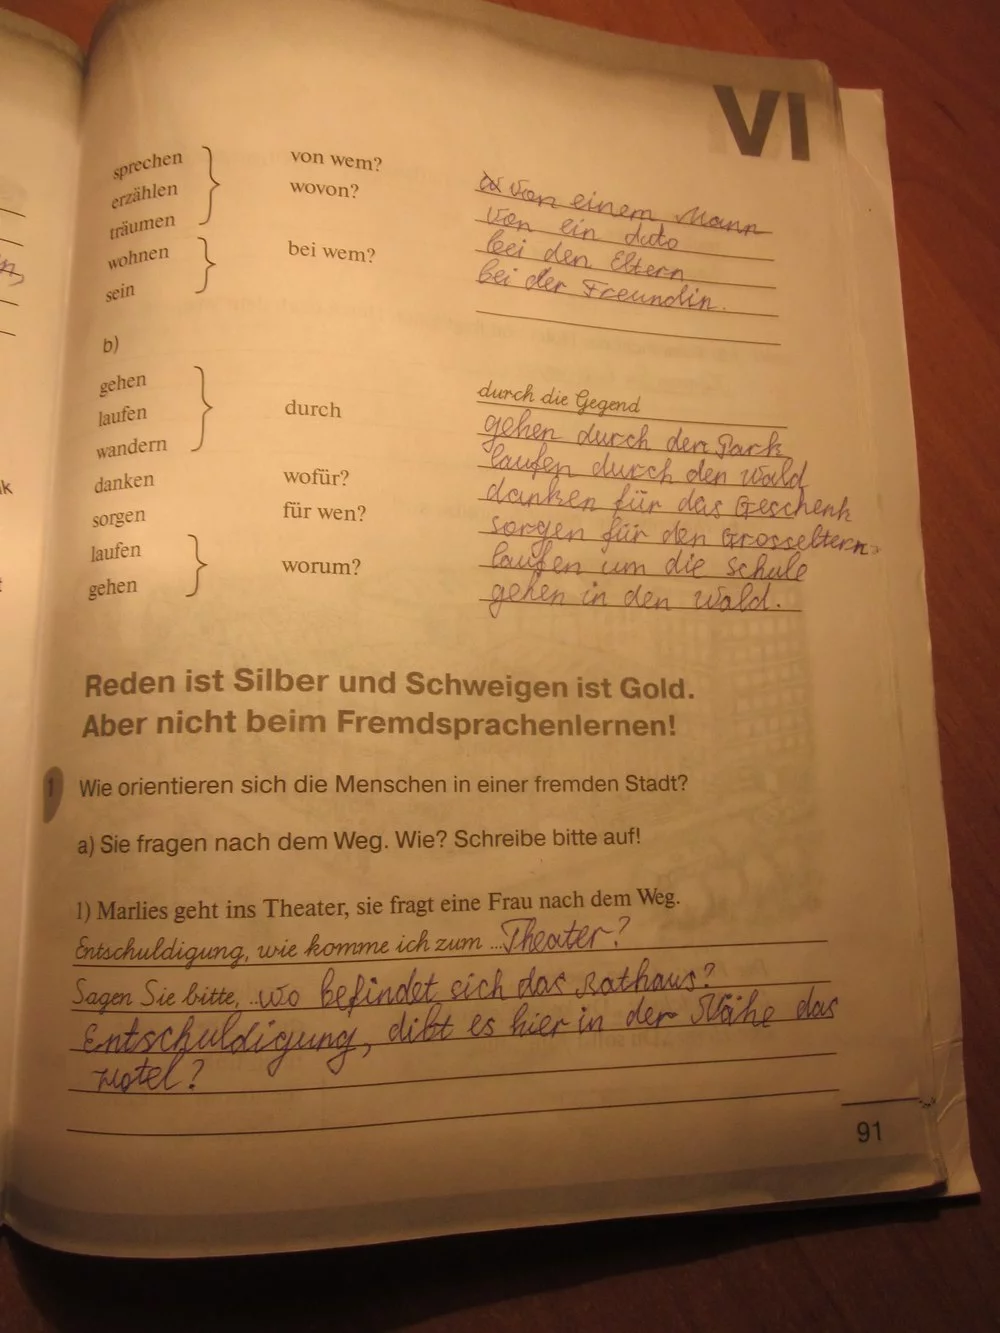 VI
sprechen
erzählen
träumen
von wem?
wovon?
von einem Mann
von ein Auto
wohnen
sein
bei wem?
bei den Eltern
bei der Freundin.
b)
gehen
laufen
wandern
durch
durch die Gegend
gehen durch den Park
laufen durch den Wald
danken wofür? danken für das Geschenk
sorgen für wen? sorgen für den Grosseltern
laufen
gehen
worum?
laufen um die Schule
gehen in den Wald.
Reden ist Silber und Schweigen ist Gold.
Aber nicht beim Fremdsprachenlernen!
1 Wie orientieren sich die Menschen in einer fremden Stadt?
a) Sie fragen nach dem Weg. Wie? Schreibe bitte auf!
1) Marlies geht ins Theater, sie fragt eine Frau nach dem Weg.
Entschuldigung, wie komme ich zum ... Theater?
Sagen Sie bitte, ... wo befindet sich das Rathaus?
Entschuldigung, dibt es hier in der Nähe das
Hotel?
91